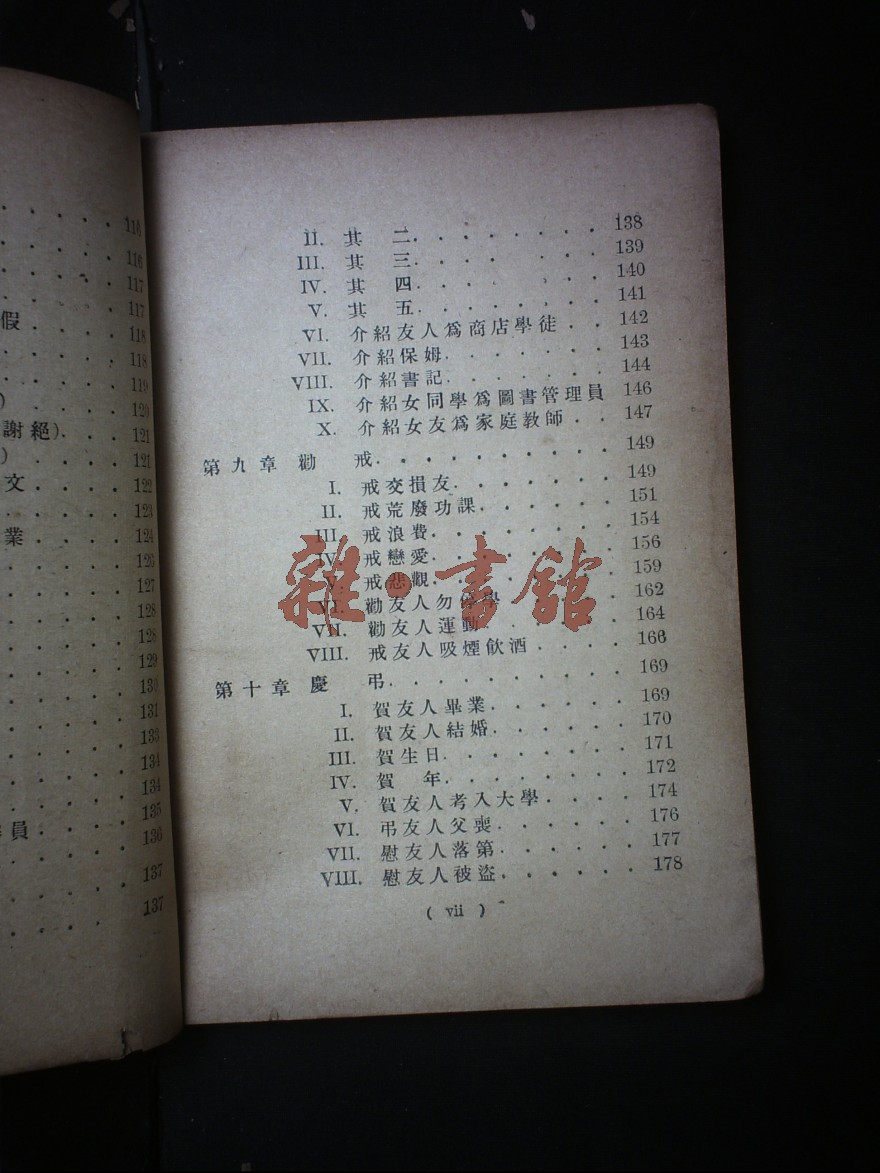 116
116
117
117
假 118
118
119
) 120
謝絕) 121
) 121
文 122
123
業 124
126
127
128
128
129
130
131
133
134
134
135
員 136
137
137
II. 其 二 138
III. 其 三 139
IV. 其 四 140
V. 其 五 141
VI. 介紹友人爲商店學徒 142
VII. 介紹保姆 143
VIII. 介紹書記 144
IX. 介紹女同學爲圖書管理員 146
X. 介紹女友爲家庭教師 147
第九章 勸 戒 149
I. 戒交損友 149
II. 戒荒廢功課 151
III. 戒浪費 154
IV. 戒戀愛 156
V. 戒悲觀 159
VI. 勸友人勿休學 162
VII. 勸友人運動 164
VIII. 戒友人吸煙飲酒 166
第十章 慶 弔 169
I. 賀友人畢業 169
II. 賀友人結婚 170
III. 賀生日 171
IV. 賀 年 172
V. 賀友人考入大學 174
VI. 弔友人父喪 176
VII. 慰友人落第 177
VIII. 慰友人被盜 178
( vii )
雜·書館